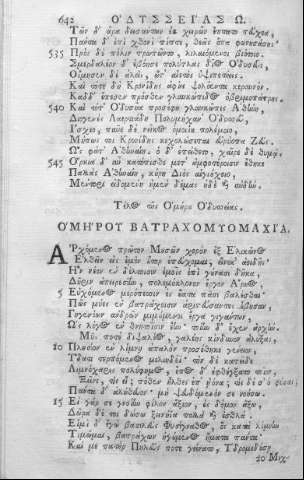 642 ὈΔΥΣΣΕΊΑΣ Ω.
Τῶν δ' ἄρα δεισάντων ἐκ χειρῶν ἔπτατο τεύχεα,
Πάντα δ' ἐπὶ χθονὶ πῖπτε, θεᾶς ὄπα φωνησάσης·
535 Πρὸς δὲ πόλιν τρωπῶντο, λιλαιόμενοι βιότοιο.
Σμερδαλέον δ' ἐβόησε πολύτλας δῖος Ὀδυσσεύς,
Οἴμησεν δὲ ἀλεὶς, ὥς τ' αἰετὸς ὑψιπετήεις.
Καὶ τότε δὴ Κρονίδης ἀφίει ψολόεντα κεραυνόν.
Κὰδδ' ἔπεσεν πρόσθεν γλαυκώπιδος ὀβριμοπάτρης.
540 Καὶ τότ' Ὀδυσσῆα προσέφη γλαυκῶπις Ἀθήνη,
Διογενὲς Λαερτιάδη Πολυμήχαν' Ὀδυσσεῦ,
Ἴσχεο, παῦε δὲ νεῖκος ὁμοιΐου πολέμοιο,
Μήπως τοι Κρονίδης κεχολώσεται εὐρύοπα Ζεύς.
Ὣς φάτ' Ἀθηναίη, ὁ δ' ἐπείθετο, χαῖρε δὲ θυμῷ.
545 Ὅρκια δ' αὖ κατόπισθε μετ' ἀμφοτέροισιν ἔθηκε
Παλλὰς Ἀθηναίη, κούρη Διὸς αἰγιόχοιο,
Μέντορι εἰδομένη ἠμὲν δέμας ἠδὲ καὶ αὐδήν.
Τέλος τῆς Ὁμήρου Ὀδυσσείας.
ὈΜΗΡΟΥ ΒΑΤΡΑΧΟΜΥΟΜΑΧΊΑ.
Ἀρχόμενος πρῶτον Μουσῶν χορὸν ἐξ Ἑλικῶνος
Ἐλθεῖν εἰς ἐμὸν ἦτορ ἐπεύχομαι, εἵνεκ' ἀοιδῆς·
Ἣν νέον ἐν δέλτοισιν ἐμοῖς ἐπὶ γούνασι θῆκα,
Δῆριν ἀπειρεσίην, πολεμόκλονον ἔργον Ἄρηος,
5 Εὐχόμενος μερόπεσσιν ἐς οὔατα πᾶσι βαλέσθαι·
Πῶς μύες ἐν βατράχοισιν ἀριστεύσαντες ἔβησαν,
Γηγενέων ἀνδρῶν μιμούμενοι ἔργα γιγάντων,
Ὡς λόγος ἐν θνητοῖσιν ἔην· τοίην δ' ἔχεν ἀρχήν.
Μῦς ποτε διψαλέος, γαλέης κίνδυνον ἀλύξας,
10 Πλησίον ἐν λίμνῃ ἁπαλὸν προσέθηκε γένειον,
Ὕδατι τερπόμενος μελιηδέϊ· τὸν δὲ κατεῖδε
Λιμνόχαρις πολύφημος, ἔπος δ' ἐφθέγξατο τοῖον,
Ξεῖνε, τίς εἶ; πόθεν ἦλθες ἐπ' ἠϊόνα; τίς δέ σ' ὁ φύσας;
Πάντα δ' ἀλήθευσον· μὴ ψευδόμενόν σε νοήσω.
15 Εἰ γάρ σε γνοίην φίλον ἄξιον, ἐς δόμον ἄξω,
Δῶρα δέ τοι δώσω ξεινήϊα πολλὰ καὶ ἐσθλά.
Εἰμὶ δ' ἐγὼ βασιλεὺς Φυσίγναθος, ὃς κατὰ λίμνην
Τιμῶμαι, βατράχων ἡγούμενος ἤματα πάντα·
Καί με πατὴρ Πηλεὺς ποτε γείνατο, Ὑδρομεδούσῃ
20 Μιχ-